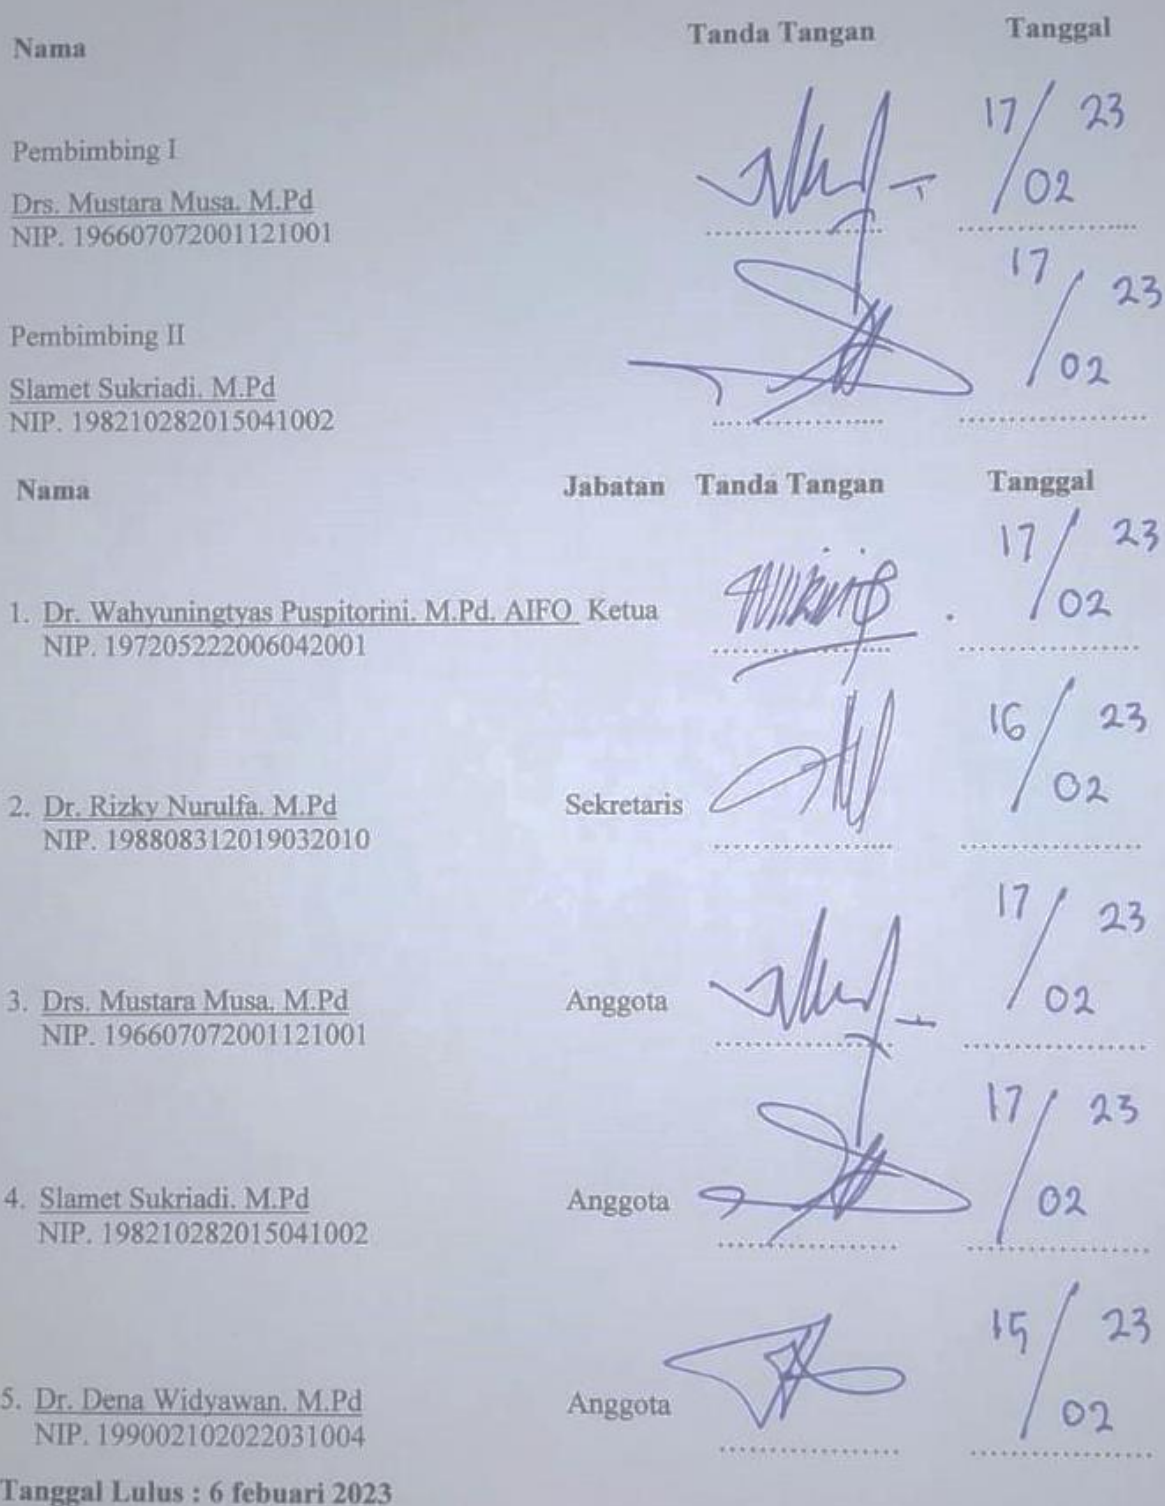 Nama Tanda Tangan Tanggal
Pembimbing I
17/02 23
Drs. Mustara Musa. M.Pd
NIP. 196607072001121001
Pembimbing II
17/02 23
Slamet Sukriadi. M.Pd
NIP. 198210282015041002
Nama Jabatan Tanda Tangan Tanggal
1. Dr. Wahyuningtyas Puspitorini. M.Pd. AIFO Ketua 17/02 23
NIP. 197205222006042001
2. Dr. Rizky Nurulfa. M.Pd Sekretaris 16/02 23
NIP. 198808312019032010
3. Drs. Mustara Musa. M.Pd Anggota 17/02 23
NIP. 196607072001121001
4. Slamet Sukriadi. M.Pd Anggota 17/02 23
NIP. 198210282015041002
5. Dr. Dena Widyawan. M.Pd Anggota 15/02 23
NIP. 199002102022031004
Tanggal Lulus : 6 febuari 2023